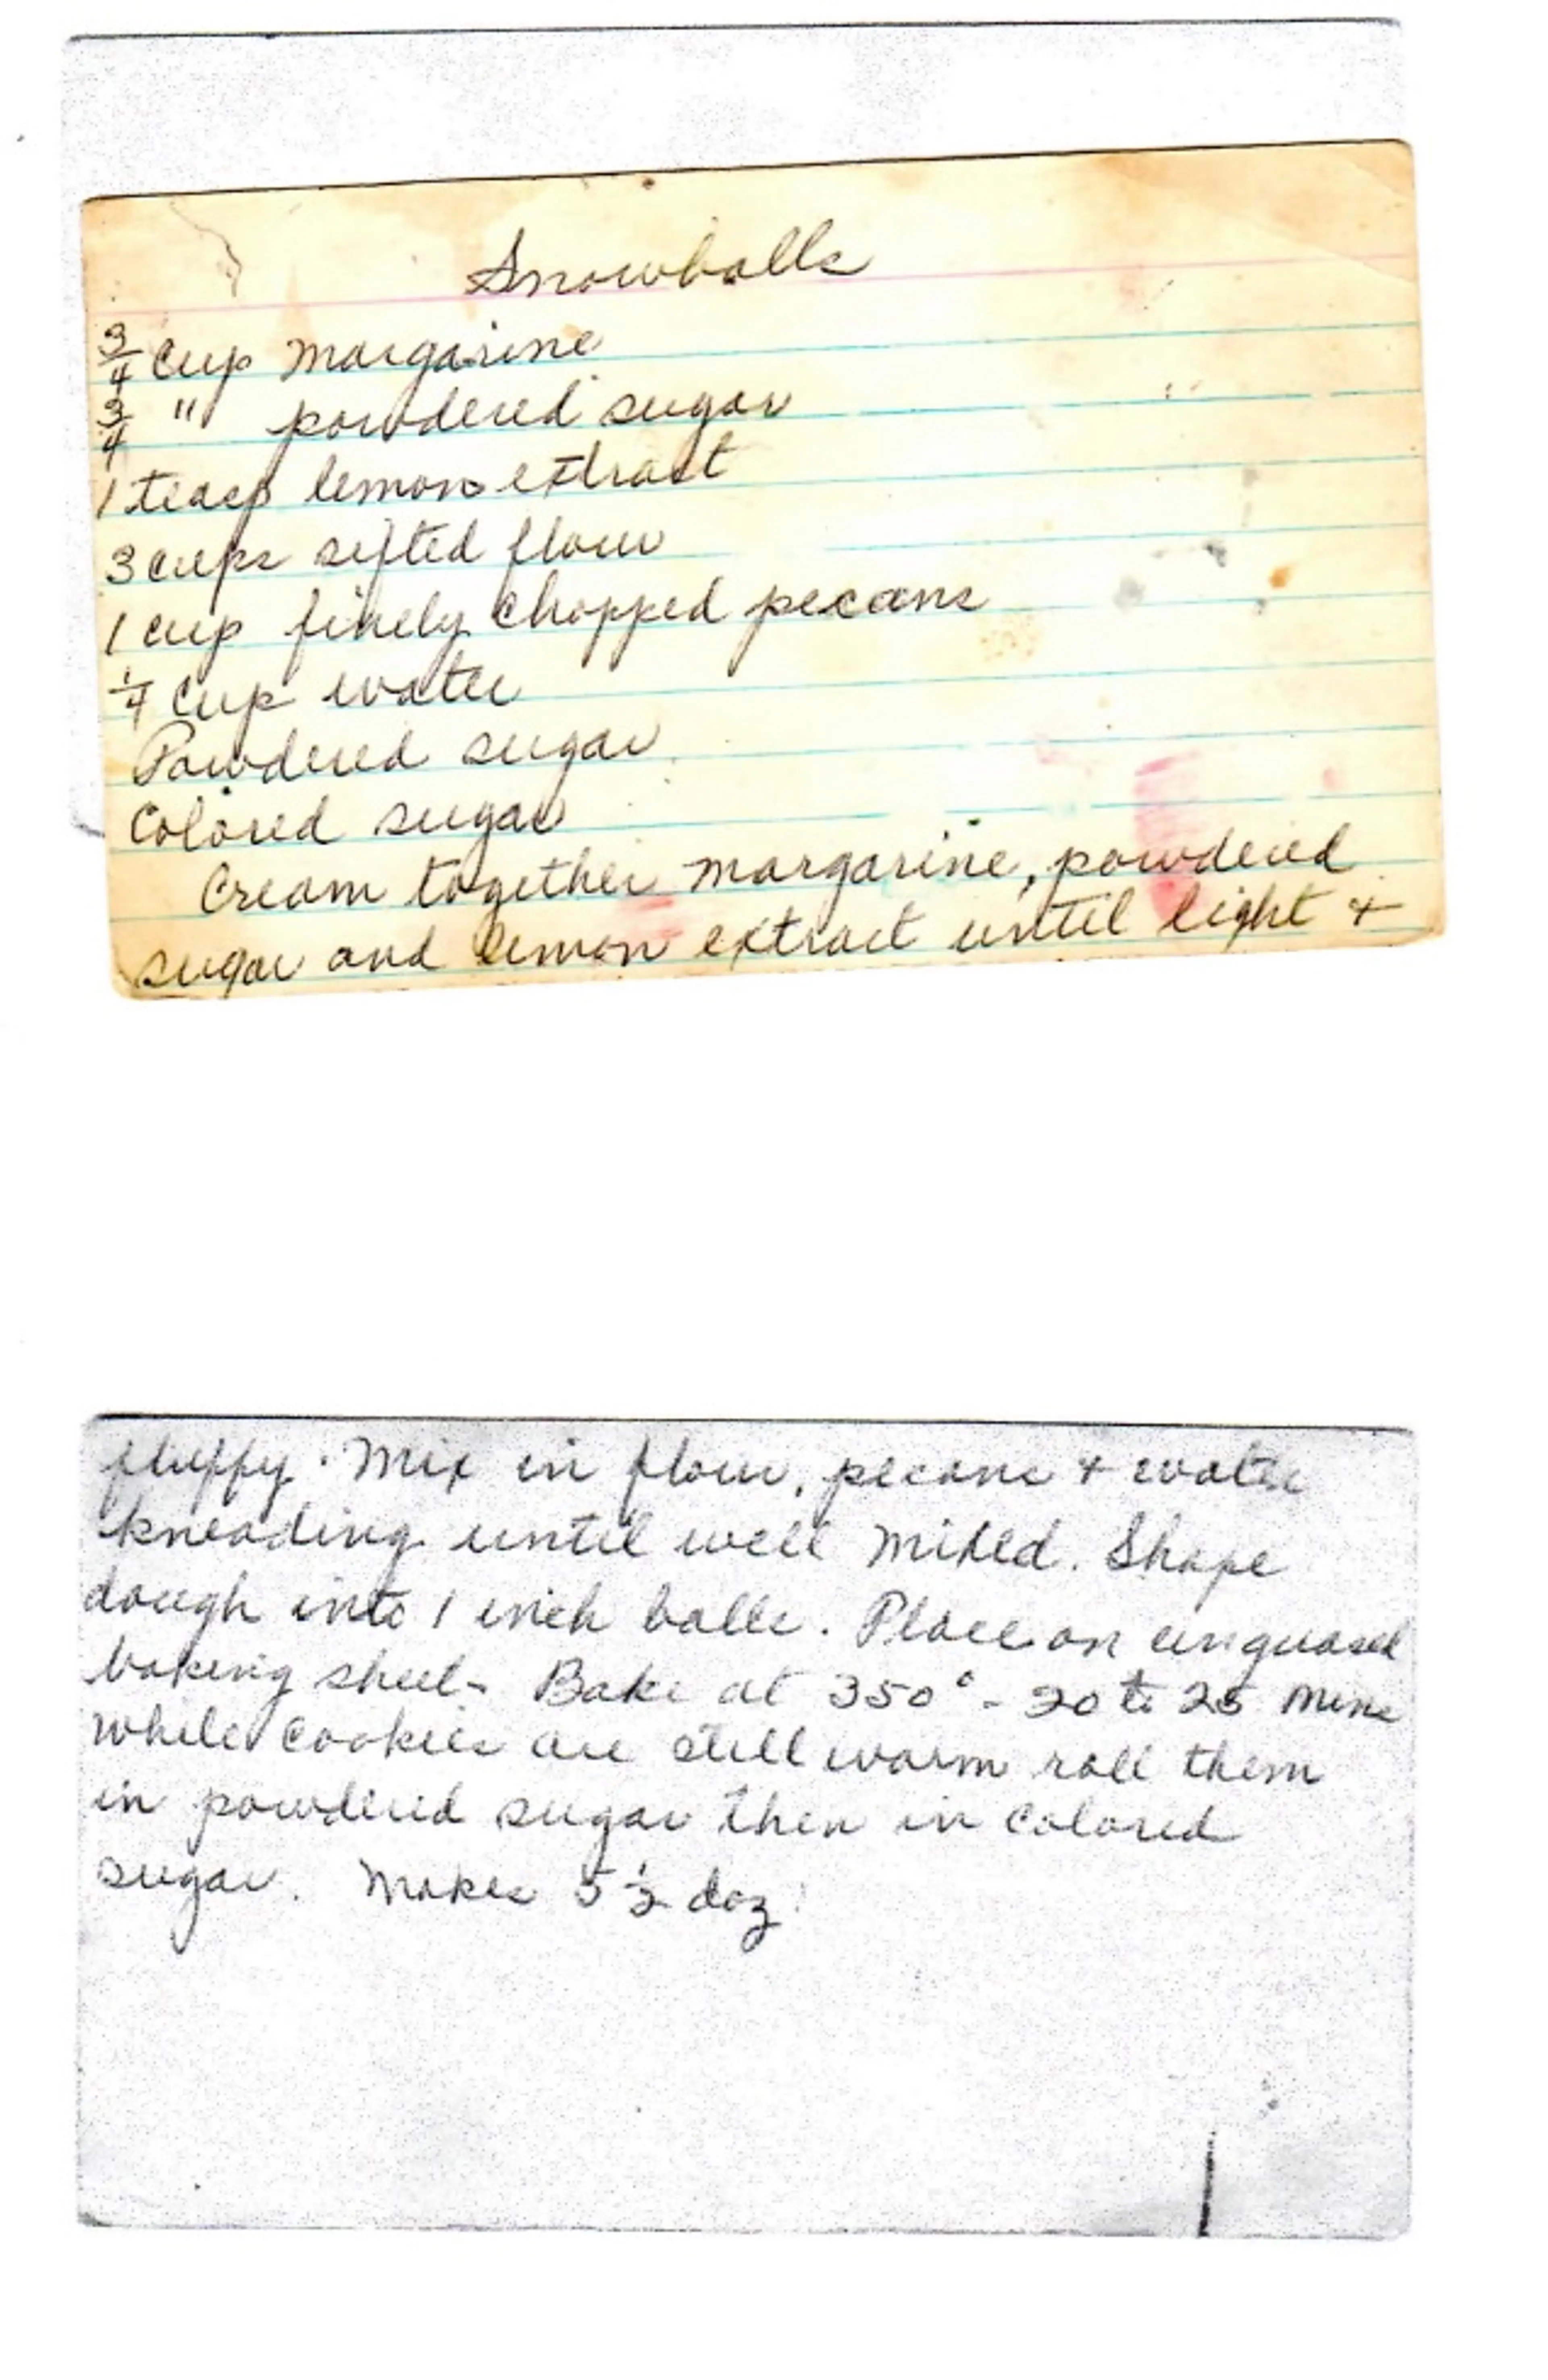 Snowballs
3/4 cup margarine
3/4 " powdered sugar
1 teasp lemon extract
3 cups sifted flour
1 cup finely chopped pecans
1/4 cup water
Powdered sugar
Colored sugar
Cream together margarine, powdered
sugar and lemon extract until light +
fluffy. Mix in flour, pecans + water
kneading until well mixed. Shape
dough into 1 inch balls. Place on ungreased
baking sheet - Bake at 350° - 20 to 25 mins
while cookies are still warm roll them
in powdered sugar then in colored
sugar. Makes 5 1/2 doz.